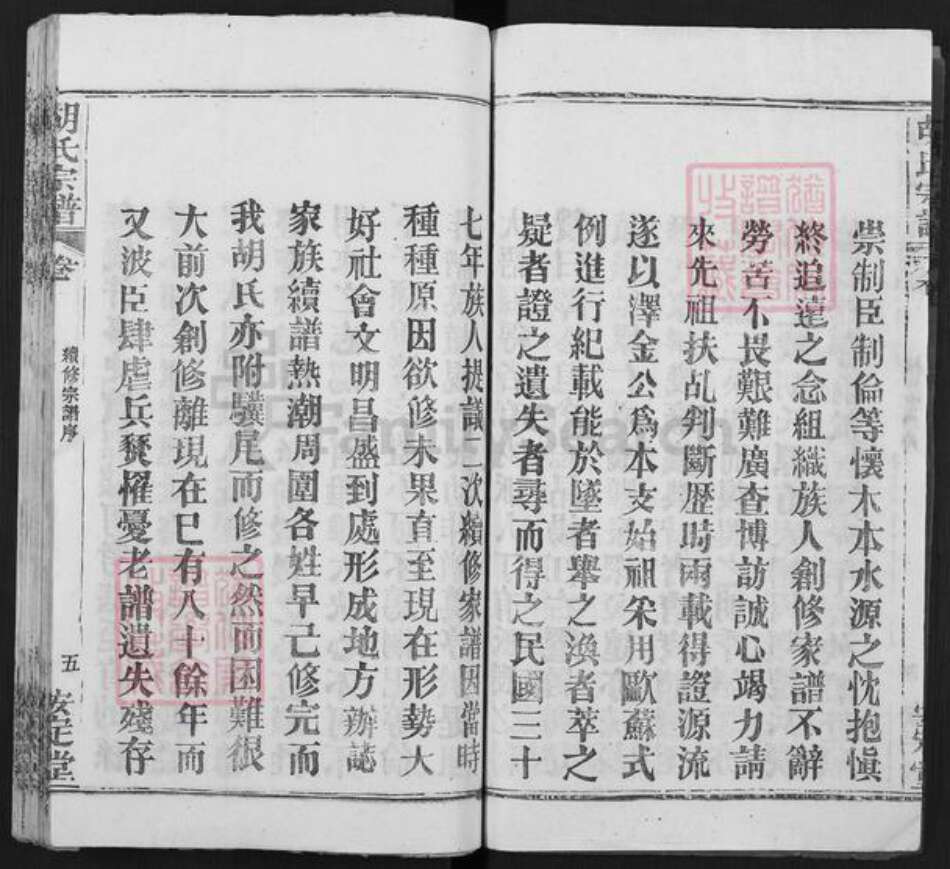 崇制臣制倫等懷木本水源之忱抱慎
終追遠之念組織族人創修家譜不辭
勞苦不畏艱難廣查博訪誠心竭力請
來先祖扶乩判斷歷時兩載得證源流
遂以澤金公爲本支始祖采用歐蘇式
例進行紀載能於墜者舉之渙者萃之
疑者證之遺失者尋而得之民國三十
七年族人提議二次續修家譜因當時
種種原因欲修未果直至現在形勢大
好社會文明昌盛到處形成地方辦誌
家族續譜熱潮周圍各姓早已修完而
我胡氏亦附驥尾而修之然而困難很
大前次創修離現在已有八十餘年而
又波臣肆虐兵燹罹憂老譜遺失殘存
胡氏宗譜
卷
續修宗譜序
五
安定堂
FamilySearch